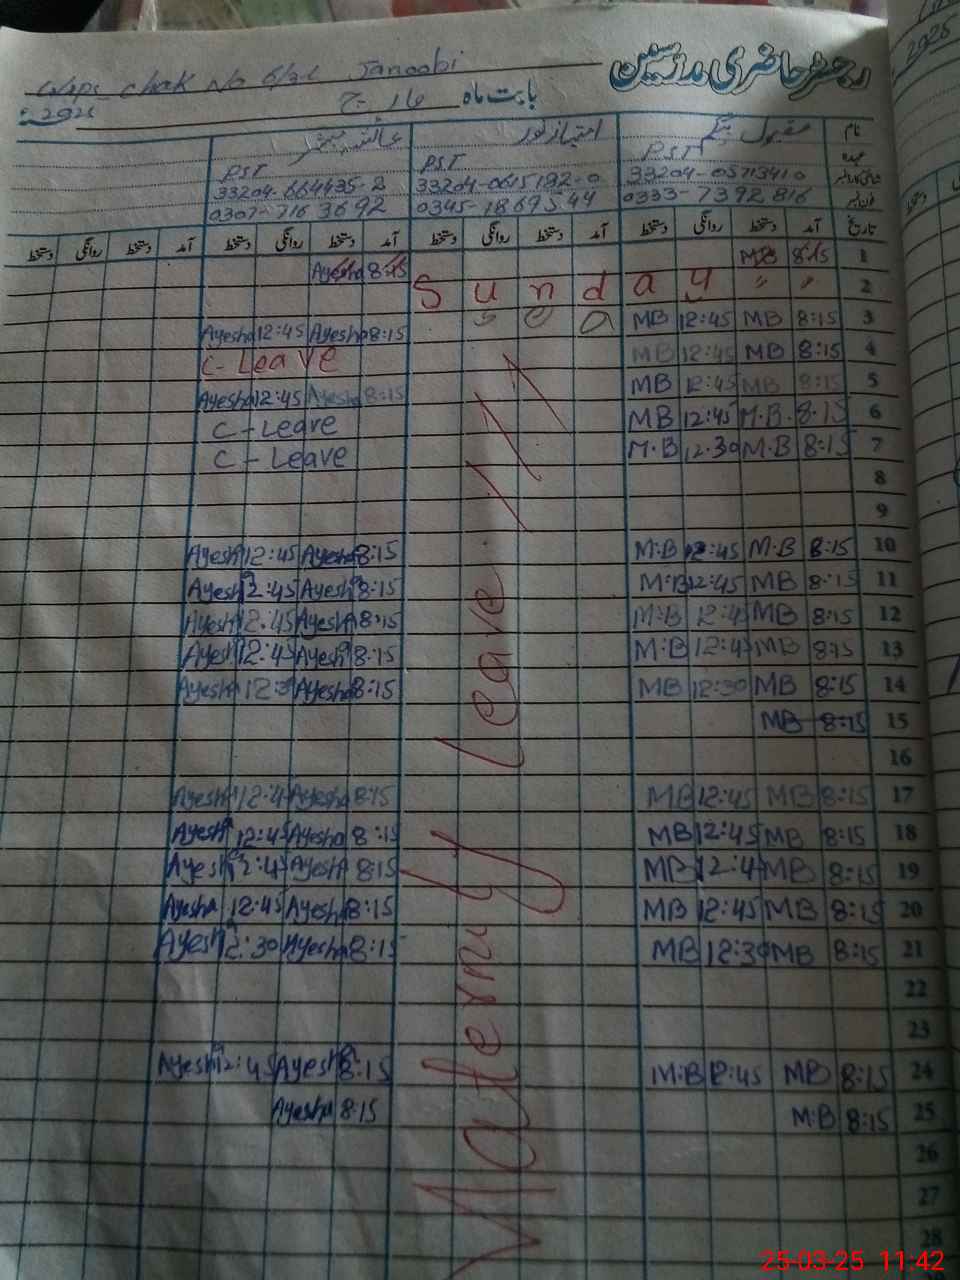 رجسٹر حاضری مدرسین
Chak No Janoobi
بابت ماہ مارچ
2025
نام مقبول بیگم امتیاز نور عائشہ
عہدہ PST PST PST
33204-0571341-0 33204-0615192-0 33204-664435-2
0333-7392816 0345-1869544 0307-7163692
تاریخ آمد دستخط روانگی دستخط آمد دستخط روانگی دستخط آمد دستخط روانگی دستخط آمد دستخط روانگی دستخط
1 8:15 MB 8:15 Ayesha
2 " " Sunday
3 8:15 MB 12:45 MB 8:15 Ayesha 12:45 Ayesha
4 8:15 MB 12:45 MB C-Leave
5 8:15 MB 12:45 MB 8:15 Ayesha 12:45 Ayesha
6 8:15 M.B. 12:45 MB C-Leave
7 8:15 M.B 12:30 M.B C-Leave
8
9
10 8:15 M.B 12:45 M:B 8:15 Ayesha 12:45 Ayesha
11 8:15 MB 12:45 M:B 8:15 Ayesha 12:45 Ayesha
12 8:15 MB 12:45 M:B 8:15 Ayesha 12:45 Ayesha
13 8:15 MB 12:45 M:B 8:15 Ayesha 12:45 Ayesha
14 8:15 MB 12:30 MB 8:15 Ayesha 12:3 Ayesha
15 8:15 MB
16
17 8:15 MB 12:45 MB 8:15 Ayesha 12:4 Ayesha
18 8:15 MB 12:45 MB 8:15 Ayesha 12:45 Ayesha
19 8:15 MB 12:4 MB 8:15 Ayesha 12:45 Ayesha
20 8:15 MB 12:45 MB 8:15 Ayesha 12:45 Ayesha
21 8:15 MB 12:30 MB 8:15 Ayesha 12:30 Ayesha
22
23
24 8:15 MB 12:45 M:B 8:15 Ayesha 12:45 Ayesha
25 8:15 M:B 8:15 Ayesha
26
27
28
Maternity leave
2025
25-03-25 11:42